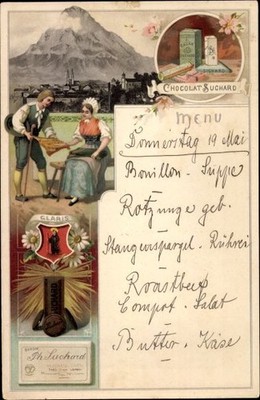 CHOCOLAT SUCHARD
MENU
Donnerstag 19 Mai
Bouillon - Suppe
Rotzunge geb.
Stangenspargel - Rührei
Roastbeef
Compot - Salat
Butter - Käse
GLARIS
SUCHARD
Ph. Suchard